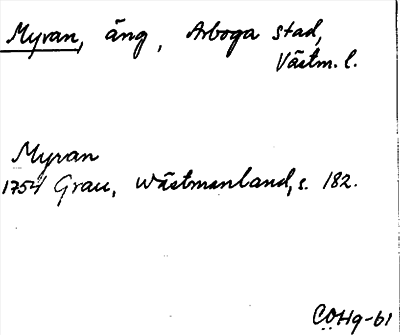 Myran, äng, Arboga stad,
Västm. l.
Myran
1754 Grau, Wästmanland, s. 182.
COHq-61